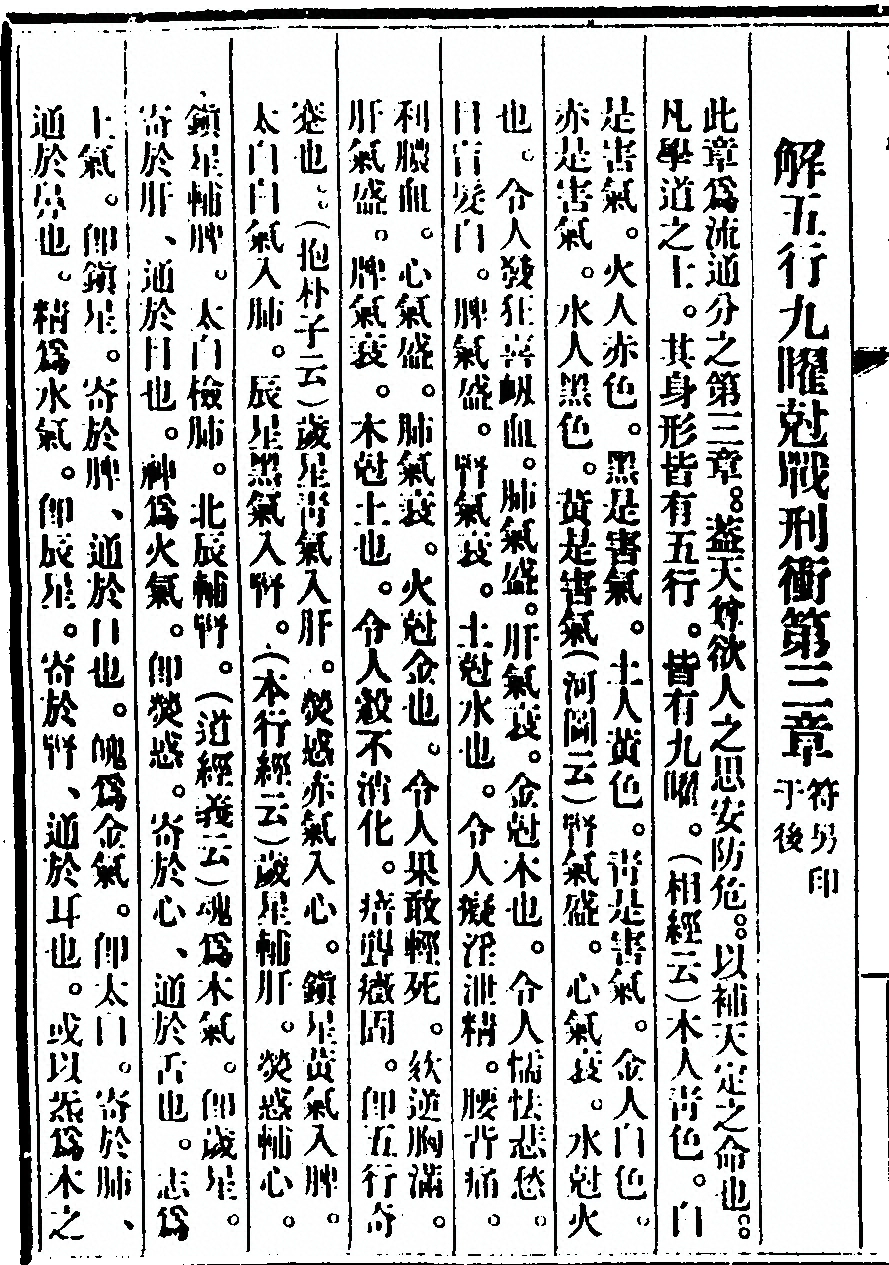 解五行九曜尅戰刑衝第三章
符另印
于後
此章爲流通分之第三章。蓋天尊欲人之思安防危。以補天定之命也。
凡學道之士。其身形皆有五行。皆有九曜。(相經云)木人靑色。白
是害氣。火人赤色。黑是害氣。土人黃色。靑是害氣。金人白色。
赤是害氣。水人黑色。黃是害氣(河圖云)腎氣盛。心氣衰。水尅火
也。令人發狂喜衂血。肺氣盛。肝氣衰。金尅木也。令人懦怯悲愁。
目盲髮白。脾氣盛。腎氣衰。土尅水也。令人癡淫泄精。腰背痛。
利膿血。心氣盛。肺氣衰。火尅金也。令人果敢輕死。欬逆胸滿。
肝氣盛。脾氣衰。木尅土也。令人穀不消化。瘖聾癥固。卽五行奇
蹇也。(抱朴子云)歲星靑氣入肝。熒惑赤氣入心。鎭星黃氣入脾。
太白白氣入肺。辰星黑氣入腎。(本行經云)歲星輔肝。熒惑輔心。
鎭星輔脾。太白檢肺。北辰輔腎。(道經義云)魂爲木氣。卽歲星。
寄於肝、通於目也。神爲火氣。卽熒惑。寄於心、通於舌也。志爲
土氣。卽鎭星。寄於脾、通於口也。魄爲金氣。卽太白。寄於肺、
通於鼻也。精爲水氣。卽辰星。寄於腎、通於耳也。或以炁爲木之